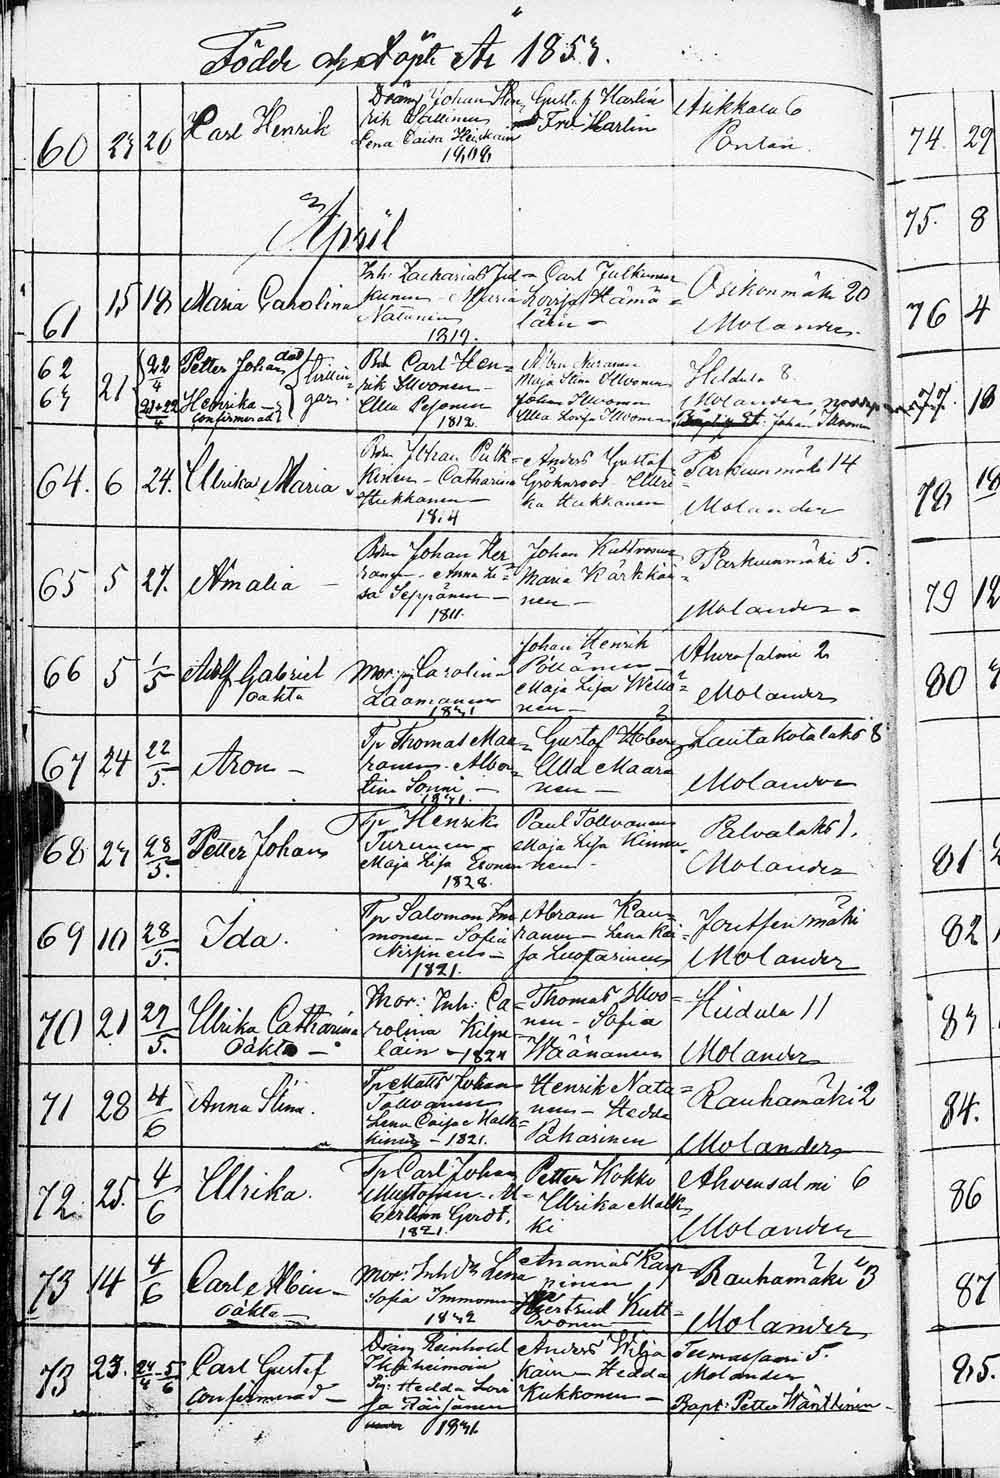 Födde och Döpte År 1853.
60 23 26 Carl Henrik
Dräng Johan Hen
rik Wallinen
Lena Caisa Heiskain
1808
Gustaf Harlin
Fru Harlin
Aikkala 6
Pontan.
April
61 15 18 Maria Carolina
Inh: Zacharias Jul
kunen - Maria
Natunen
1819.
Carl Julkunen
Lovisa Hämä=
läin -
Osikonmäki 20
Molander.
62
63 21 22/4
Petter Johan död
Henrika -
confirmerad
tvillin
gar.
Bd Carl Hen=
rik Ilwonen -
Ulla Pesonen
1812.
Maja Stina Ilwonen
Johan Ilwonen
Ulla Lovisa Ilwonen
Hiidula 8.
Molander
Johan Ilwonen
64. 6 24. Ulrika Maria
Bdn Johan Pulk=
kinen - Catharina
Hukkanen -
1814
Anders Gustaf
Grönroos - Ulri
ka Hukkanen
Parkunmäki 14
Molander
65 5 27. Amalia -
Bdn Johan Her
ranen - Anna Li=
sa Seppänen -
1811.
Johan Kuttvonen
Maria Kärkkäi=
nen -
Parkunmäki 5.
Molander -
66 5 1/5 Adolf Gabriel
oäkta
Mor: pig Carolina
Laamanen
1831
Johan Henrik
Pöllänen -
Maja Lisa Wello=
nen -
Ahvensalmi 2
Molander
67 24 22/5. Aron -
Tp Thomas Maa=
ranen - Alber=
tina Sorsa -
1831.
Gustaf Hoberg
Ulla Maara
nen -
Lautakotalaks 8
Molander
68 23 28/5. Petter Johan
Tp Henrik
Turunen -
Maja Lisa Eronen
1828.
Paul Tollvanen
Maja Lisa Kinnu=
nen -
Palvalaks 1.
Molander
69 10 28/5. Ida.
Tp Salomon Im
monen - Sofia
Nirpinen -
1821.
Abram Kau=
ranen - Lena Kai=
sa Luostarinen
Joutsenmäki
Molander
70 21 29/5. Ulrika Catharina
Oäkta -
Mor: Inh: Ca=
rolina Kilpe
läin - 1824
Thomas Ilwo=
nen - Sofia
Wäänänen
Hiidula 11
Molander
71 28 4/6 Anna Stina.
Tp Matts Johan
Tollvanen
Lena Caisa Malk=
kinen - 1821.
Henrik Nata=
nen - Hedda
Pakarinen
Rauhamäki 2
Molander
72 25. 4/6 Ulrika.
Tp Carl Johan
Muttonen - Al=
bertina Gerdt.
1821.
Petter Kokko
Ulrika Malk
ki
Ahvensalmi 6
Molander
73 14 4/6 Carl Albin -
oäkta -
Mor: Inh Dr Lena
Sofia Immonen
1832
Ananias Karp
pinen
Gertrud Kutt=
vonen
Rauhamäki 3
Molander
73 23. 24/4 - 5/6 Carl Gustaf
confirmerad -
Dräng Reinhold
Pig: Hedda Lovi
sa Räisänen
1831.
Anders Wilja
käin - Hedda
Kukkonen -
Tuunaansaari 5
Molander
Bapt: Petter Käntinen -
74. 29
75. 8
76 4
77. 18
78 18
79 12
80
81
82
83
84.
86
87
85.